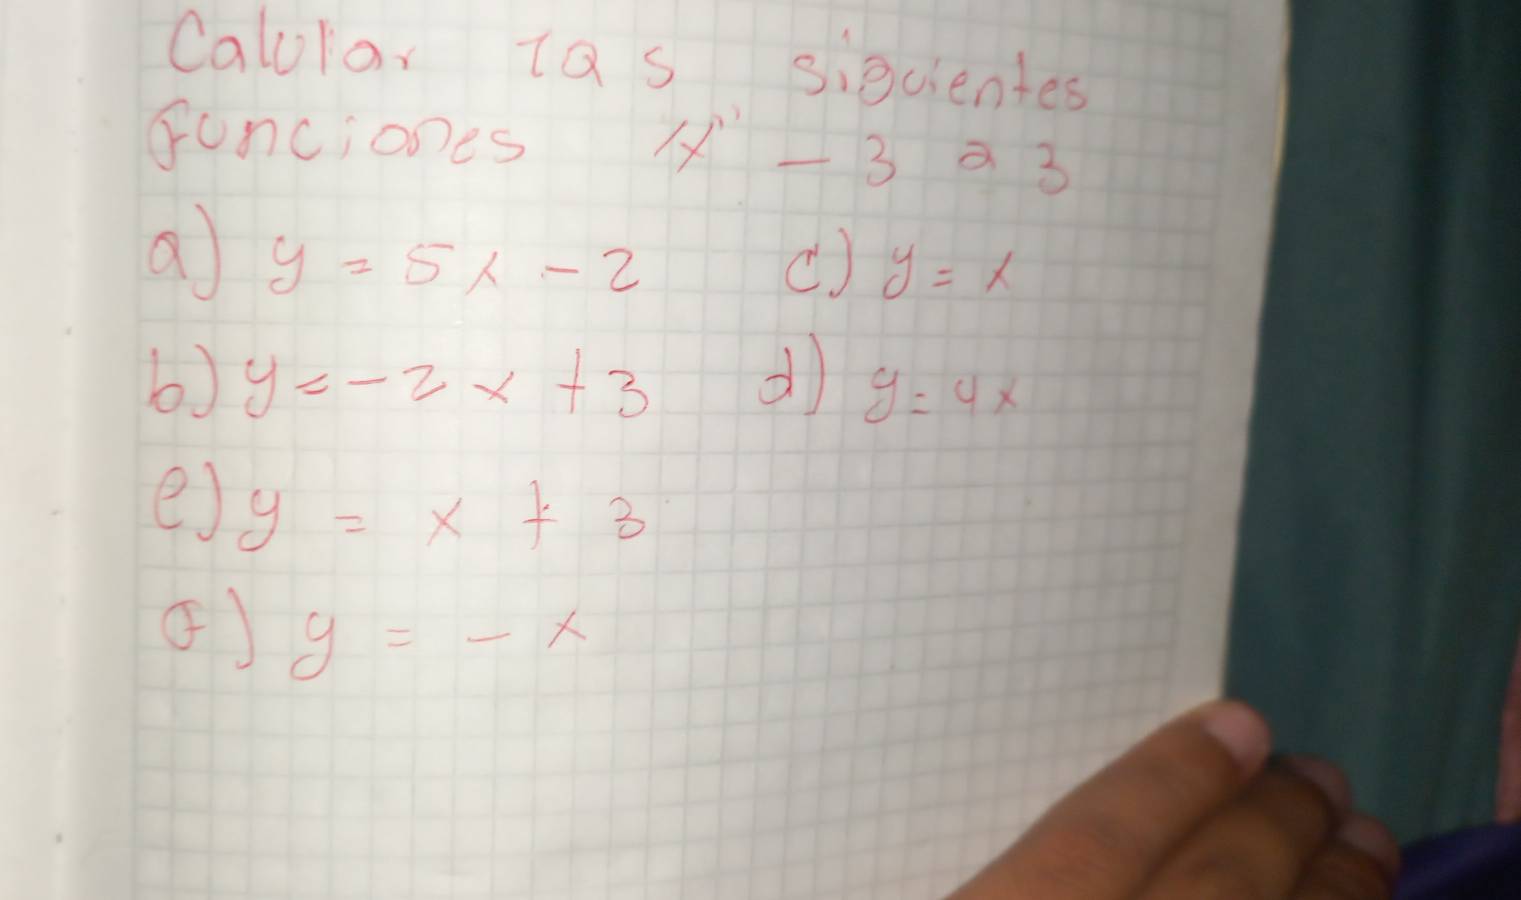 Calular las siguientes
funciones "x" - 3 a 3
a) y = 5x - 2 c) y = x
b) y = - 2x + 3 d) y = 4x
e) y = x + 3
f) y = - x